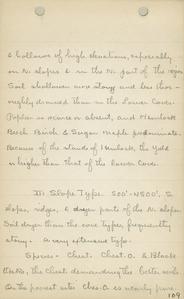 & hollows of high elevations, especially
on N. slopes & in the N. part of the region.
Soil shallower more stony and less thor-
oughly drained than in the Lower Cove.
Poplar is scarce or absent, and Hemlock
Beech Birch & Sugar Maple predominate.
Because of the stands of Hemlock, the yield
is higher than that of the Lower Cove.
III Slope Type. 800'-4500'. S
slopes, ridges, & dryer parts of the N. slopes
Soil dryer than the cove types, frequently
stony. A very extensive type.
Species - Chest. Chest. O. & Black
Oaks, the Chest demanding the better soils
On the poorest sites Ches. O. is nearly pure.
109